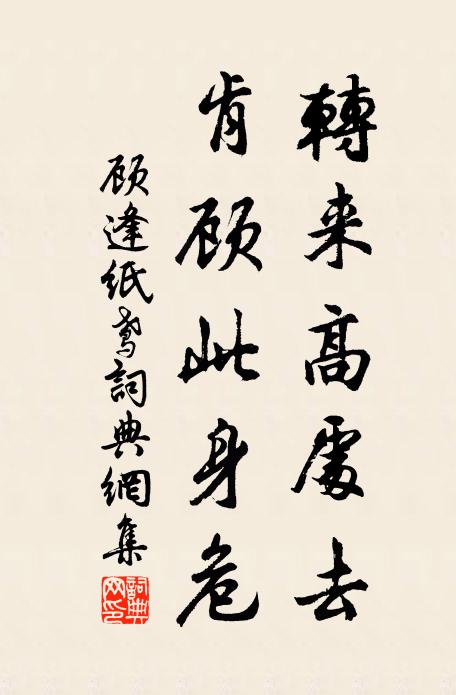 轉来高處去
肯顾此身危
顾逢紙鸢詞典網集
詞典网印